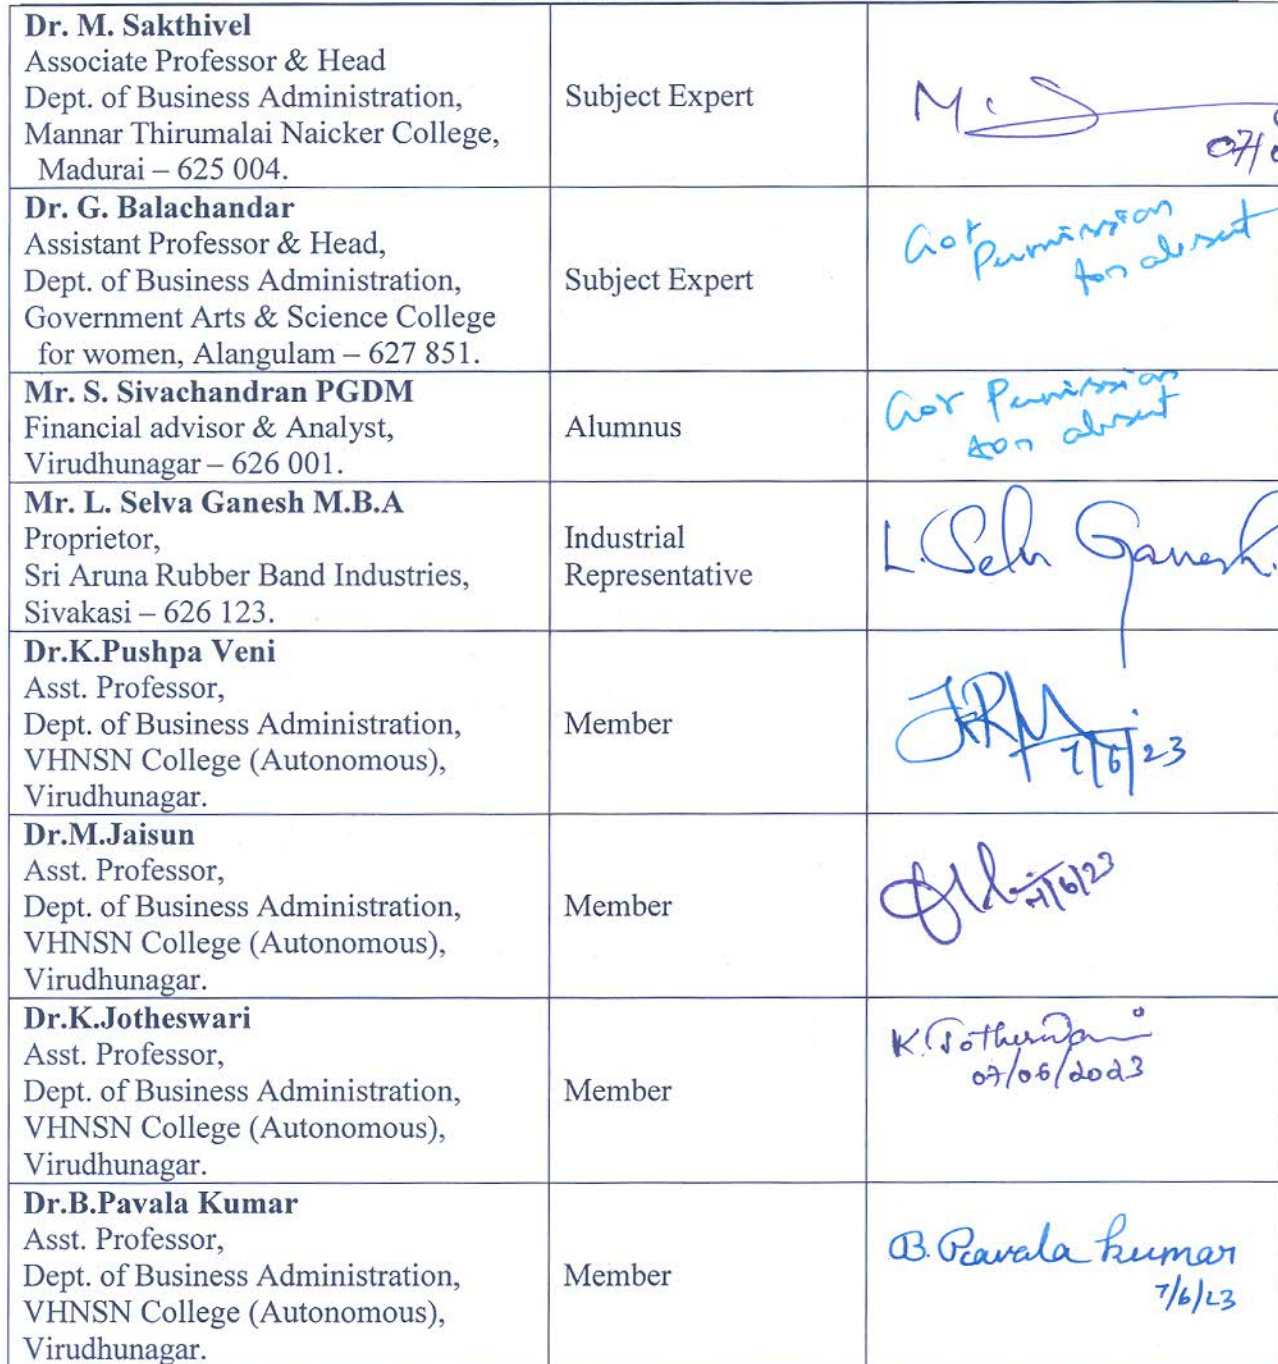 Dr. M. Sakthivel
Associate Professor & Head
Dept. of Business Administration,
Mannar Thirumalai Naicker College,
Madurai – 625 004.
Subject Expert
M.
07/0
Dr. G. Balachandar
Assistant Professor & Head,
Dept. of Business Administration,
Government Arts & Science College
for women, Alangulam – 627 851.
Subject Expert
Got
Permission
for absent
Mr. S. Sivachandran PGDM
Financial advisor & Analyst,
Virudhunagar – 626 001.
Alumnus
Got Permission
for absent
Mr. L. Selva Ganesh M.B.A
Proprietor,
Sri Aruna Rubber Band Industries,
Sivakasi – 626 123.
Industrial
Representative
L. Selva Ganesh.
Dr.K.Pushpa Veni
Asst. Professor,
Dept. of Business Administration,
VHNSN College (Autonomous),
Virudhunagar.
Member
7/6/23
Dr.M.Jaisun
Asst. Professor,
Dept. of Business Administration,
VHNSN College (Autonomous),
Virudhunagar.
Member
7/6/23
Dr.K.Jotheswari
Asst. Professor,
Dept. of Business Administration,
VHNSN College (Autonomous),
Virudhunagar.
Member
K. Jotheswari
07/06/2023
Dr.B.Pavala Kumar
Asst. Professor,
Dept. of Business Administration,
VHNSN College (Autonomous),
Virudhunagar.
Member
B. Pavala Kumar
7/6/23